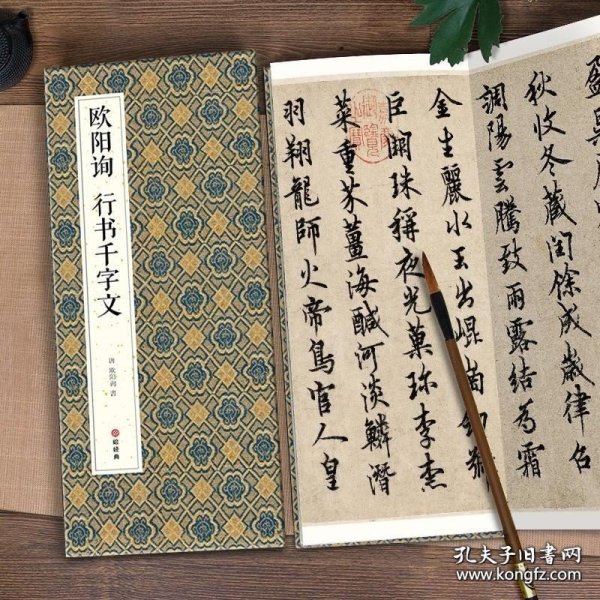 欧阳询 行书千字文
唐 欧阳询 書
盈昃
秋收冬藏閏餘成歲律召
調陽雲騰致雨露結為霜
金生麗水玉出崐崗劍號
巨闕珠稱夜光菓珍李柰
菜重芥薑海鹹河淡鱗潛
羽翔龍師火帝鳥官人皇
孔夫子旧书网
www.kongfz.com